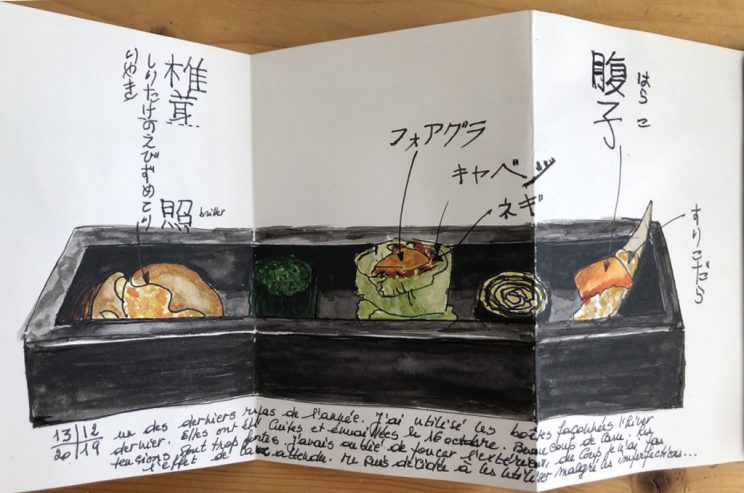 椎茸
照
briller
フォアグラ
キャベツ
ネギ
腹子
はらこ
すりこだら
13 12 un des derniers repas de l'année. J'ai utilisé les boîtes façonnées l'hiver
20 19 dernier. Elles ont été cuites et émaillées le 16 octobre. Beaucoup de
tensions sont trop fortes. J'avais oublié de foncer l'extérieur du coup je n'ai pas
l'effet de attendu. Me suis à les utiliser malgré les imperfections...